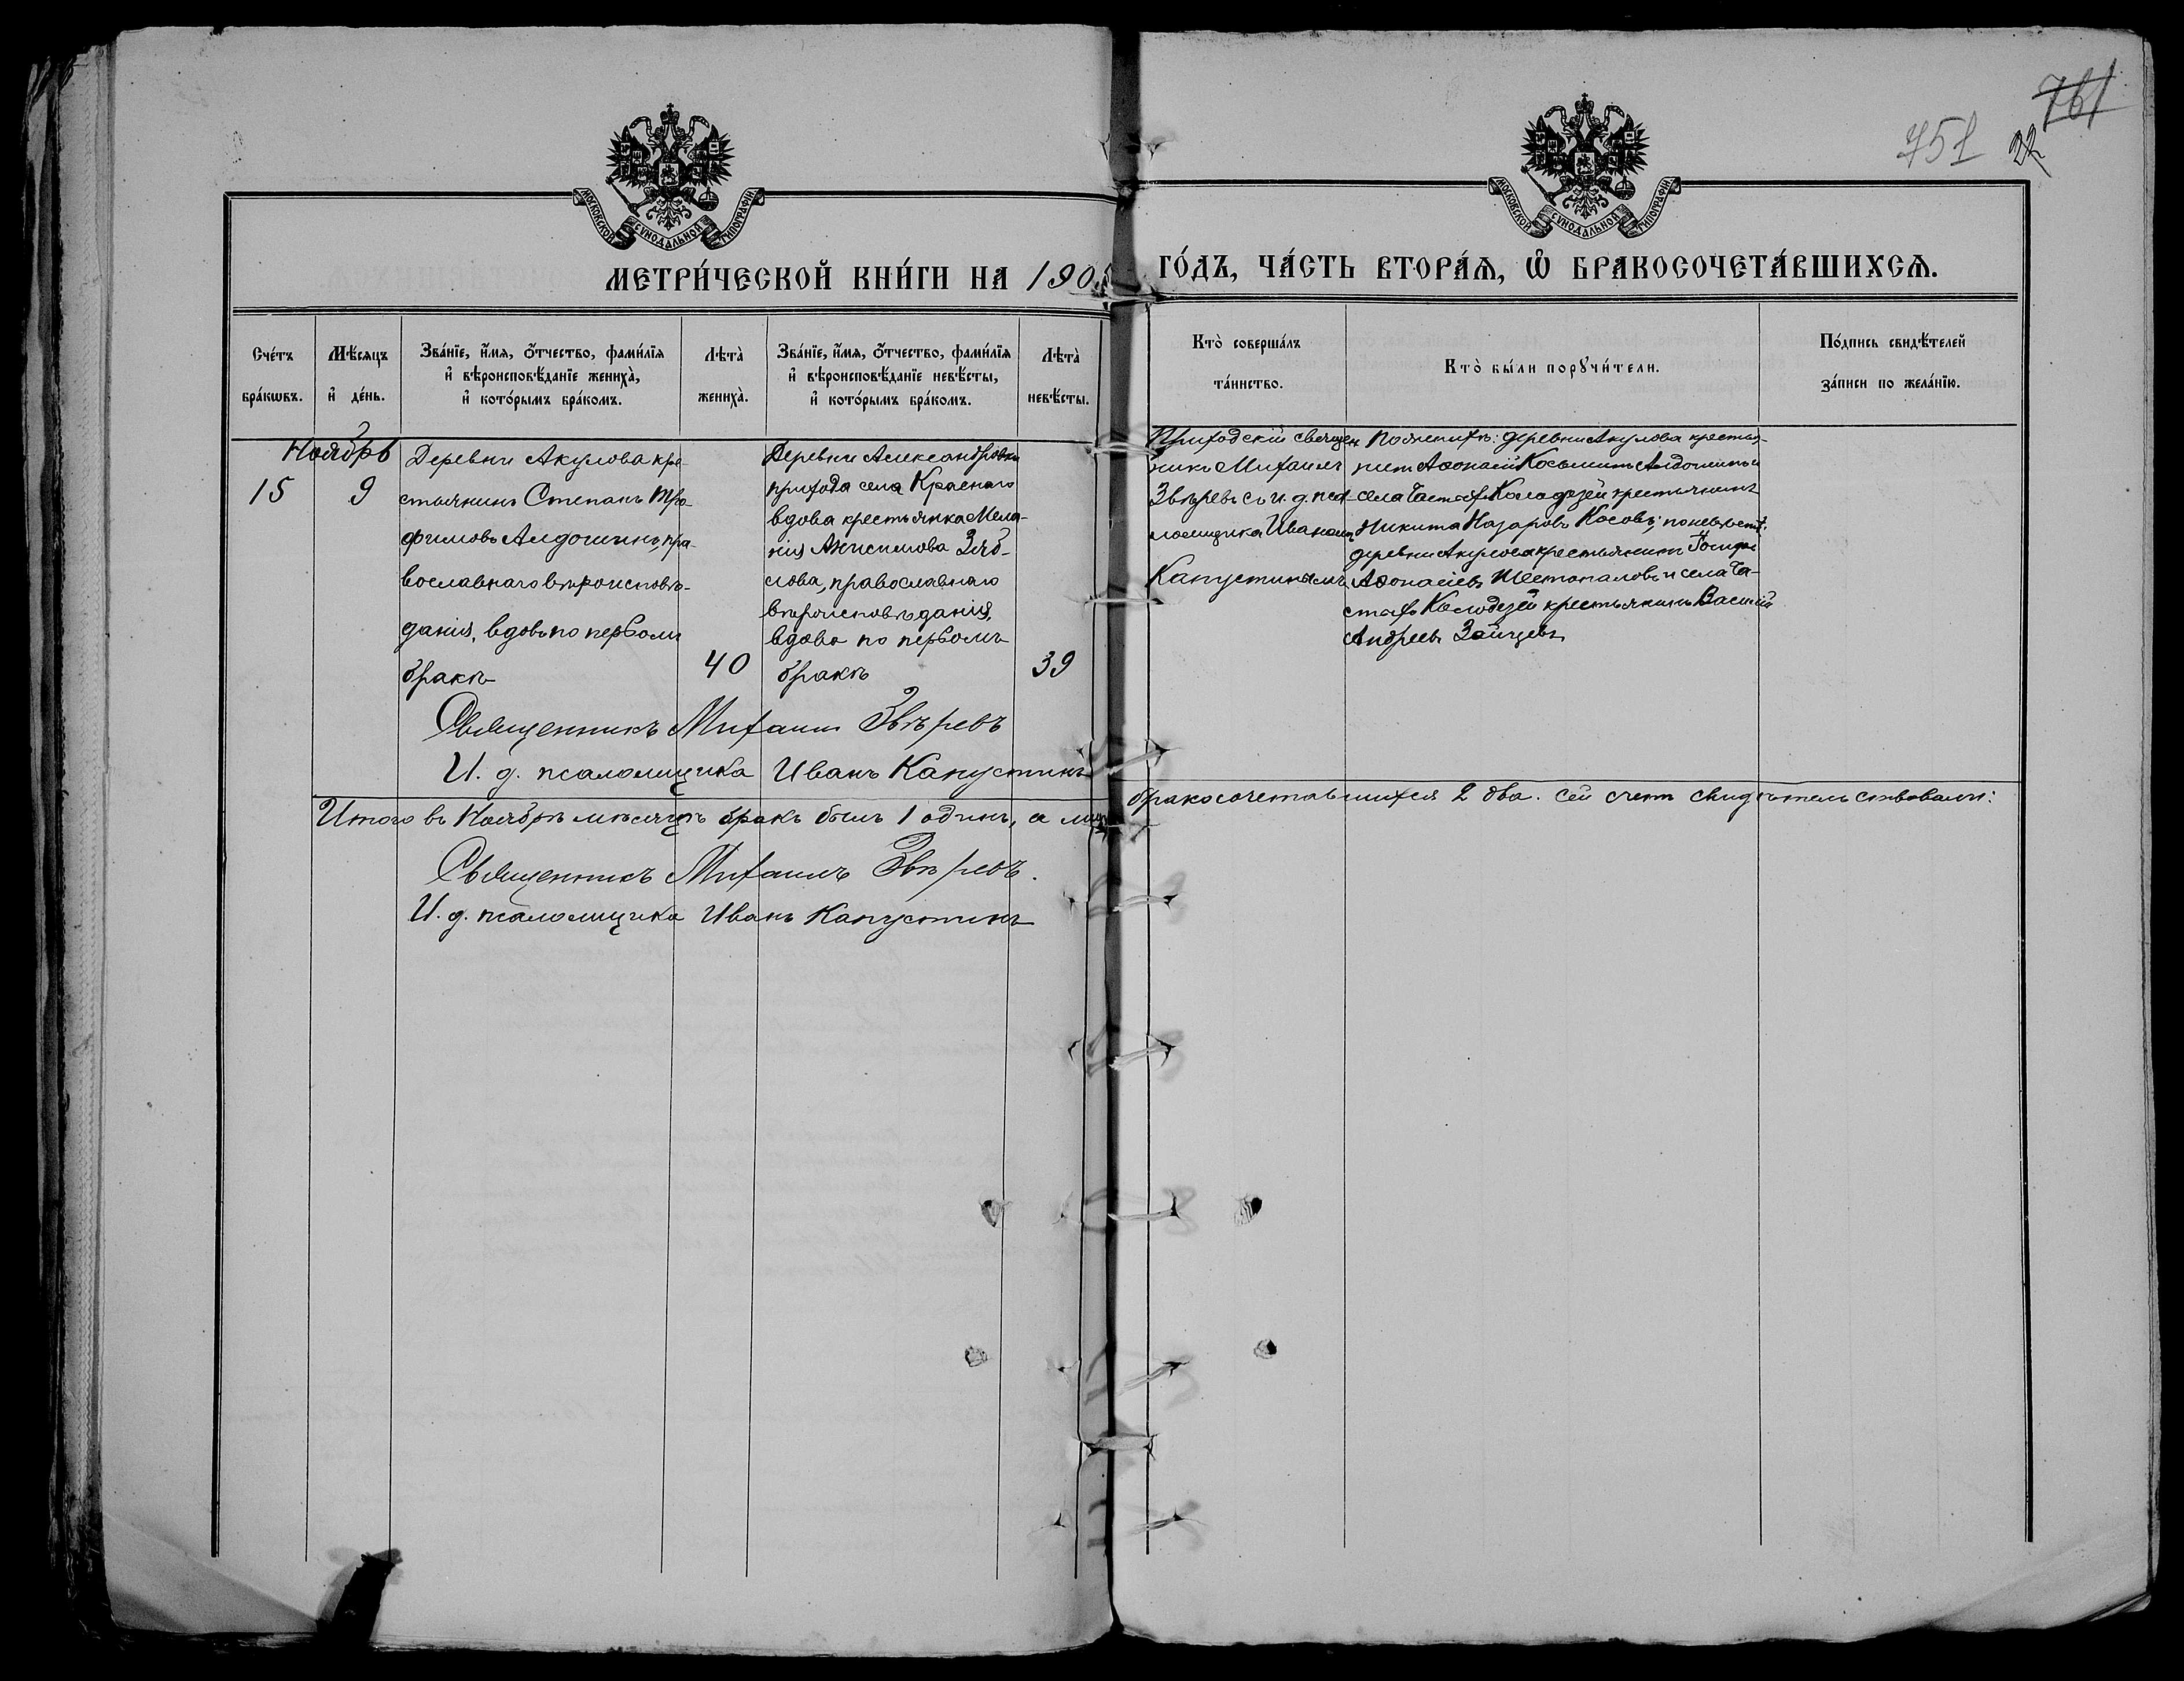 761
751
22
МОСКОВСКОЙ СѴНОДАЛЬНОЙ ТИПОГРАФІИ
МОСКОВСКОЙ СѴНОДАЛЬНОЙ ТИПОГРАФІИ
МЕТРИ́ЧЕСКОЙ КНИ́ГИ НА 1905 ГО́ДЪ, ЧА́СТЬ ВТОРА́Ѧ, Ѽ БРАКОСОЧЕТА́ВШИХСѦ.
Сче́тъ
бра́кѡвъ.
Мѣ́сяцъ
и҆ де́нь.
Зва́нїе, и҆́мя, ѻ҆́тчество, фами́лїя
и҆ вѣроисповѣ́данїе жениха̀,
и҆ кото́рымъ бра́комъ.
Лѣта̀
жениха̀.
Зва́нїе, и҆́мя, ѻ҆́тчество, фами́лїя
и҆ вѣроисповѣ́данїе невѣ́сты,
и҆ кото́рымъ бра́комъ.
Лѣта̀
невѣ́сты.
Кто̀ соверша́лъ
та́инство.
Кто̀ бы́ли порꙋчи́тели.
По́дпись свидѣ́телей
за́писи по жела́нїю.
Ноябрь
15
9
Деревни Акулова кре-
стьянинъ Степанъ Тро-
фимовъ Алдошинъ, пра-
вославнаго вѣроисповѣ-
данія, вдовъ по первомъ
бракѣ
40
Деревни Александровки
прихода села Краснаго
вдова крестьянка Мела-
нія Анисимова Зяб-
лова, православнаго
вѣроисповѣданія,
вдова по первомъ
бракѣ
39
Приходскій священ
никъ Михаилъ
Звѣревъ съ и. д. пса-
ломщика Иваномъ
Капустинымъ
По женихѣ: деревни Акулова крестья-
нинъ Аѳонасій Косьминъ Алдошинъ и
села Частыхъ Колодезей крестьянинъ
Никита Назаровъ Косовъ; по невѣстѣ:
деревни Акулова крестьянинъ
Аѳонасіевъ Шестопаловъ и села Ча-
стыхъ Колодезей крестьянинъ Василій
Андреевъ Зайцевъ
Священникъ Михаилъ Звѣревъ
И. д. псаломщика Иванъ Капустинъ
Итого въ Ноябрѣ мѣсяцѣ бракъ былъ 1 одинъ, а лицъ бракосочетавшихся 2 два. Сей счетъ свидѣтельствовали:
Священникъ Михаилъ Звѣревъ.
И. д. псаломщика Иванъ Капустинъ